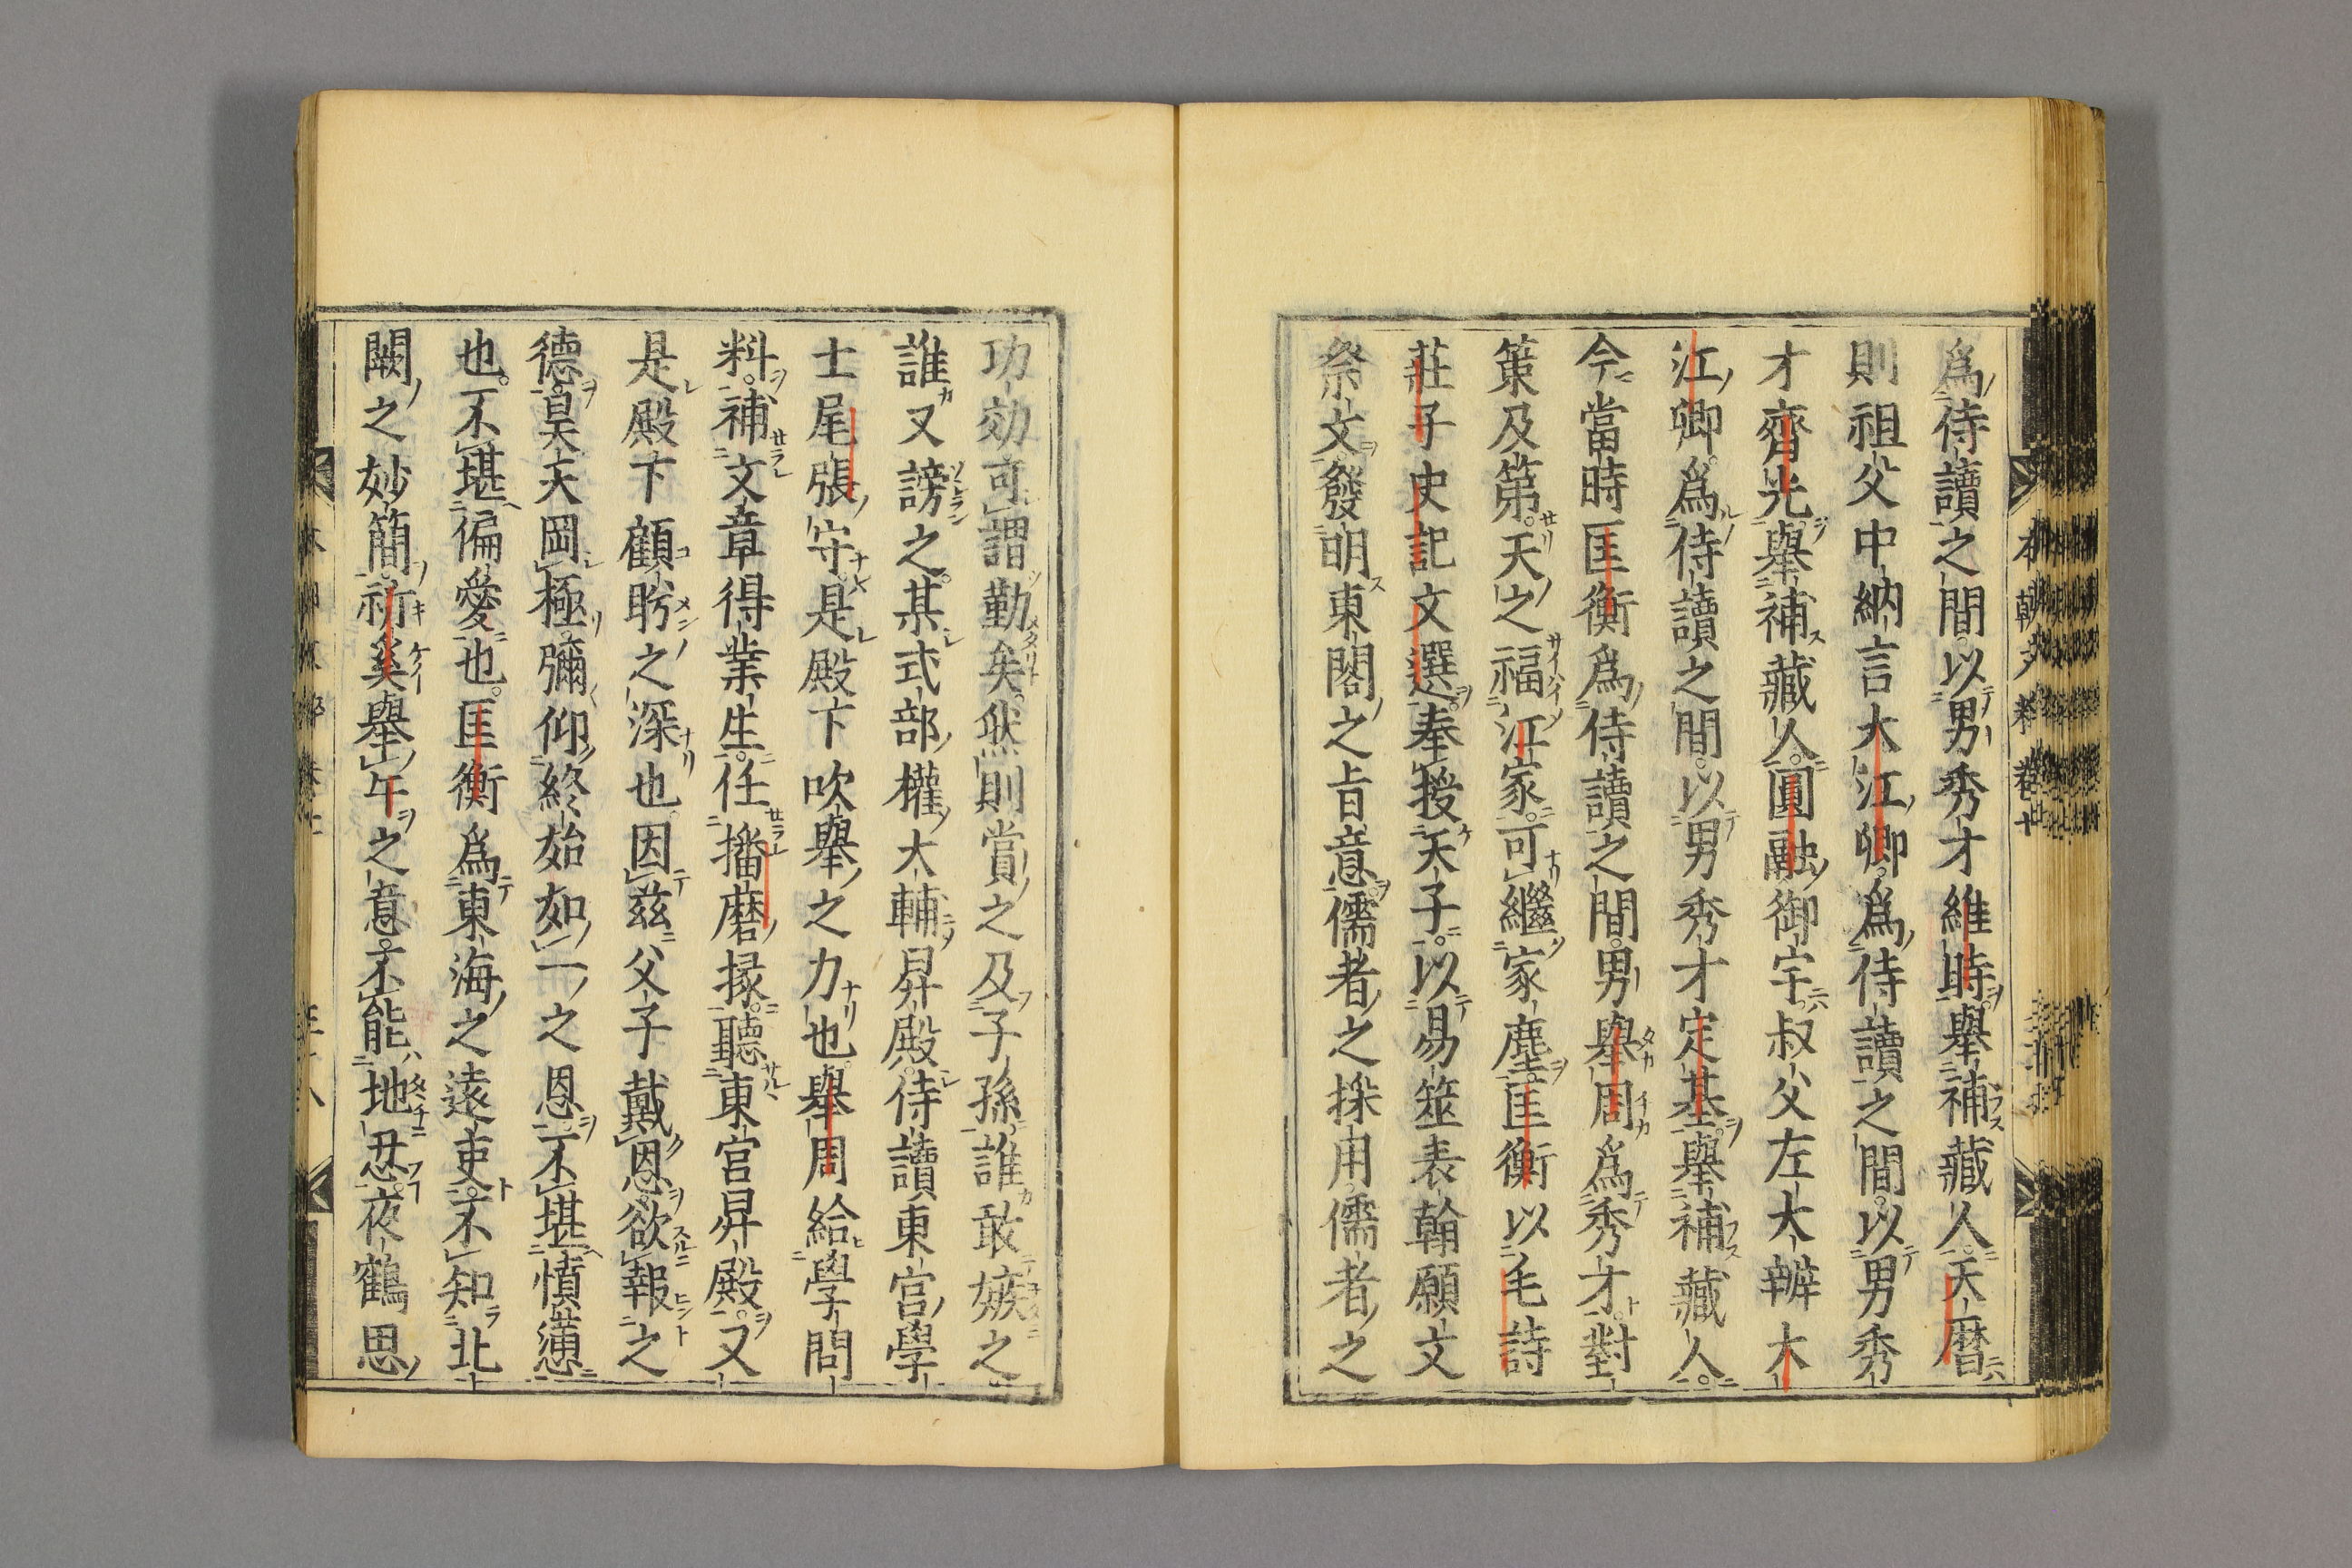 爲侍讀之間以男秀才維時舉補藏人天曆
則祖父中納言大江卿爲侍讀之間以男秀
才齊光舉補藏人圓融御宇叔父左大辨大
江卿爲侍讀之間以男秀才定基舉補藏人
今當時匡衡爲侍讀之間男舉周爲秀才對
策及第天之福江家可繼家塵匡衡以毛詩
莊子史記文選奉授天子以易筮表翰願文
祭文發明東閣之旨意儒者之採用儒者之
功効可謂勤矣然則賞之及子孫誰敢嫉之
誰又謗之某式部權大輔昇殿侍讀東宮學
士尾張守是殿下吹舉之力也舉周給學問
料補文章得業生任播磨掾聽東宮昇殿又
是殿下顧眄之深也因茲父子戴恩欲報之
德昊天岡極彌仰終始如一之恩不堪憤懣
也不堪偏愛也匡衡爲東海之遠吏不知北
闕之妙簡祈奚舉午之意不能地忍夜鶴思